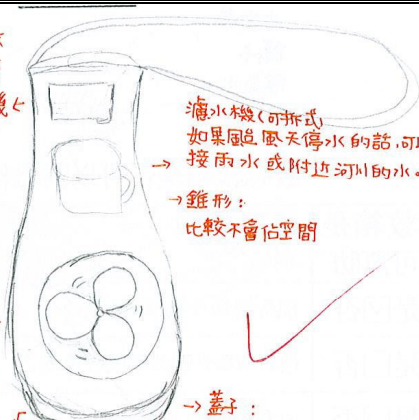 濾水機(可拆式
如果颱風天停水的話,可
接雨水或附近河川的水。
→
→錐形:
比較不會佔空間
→蓋子: